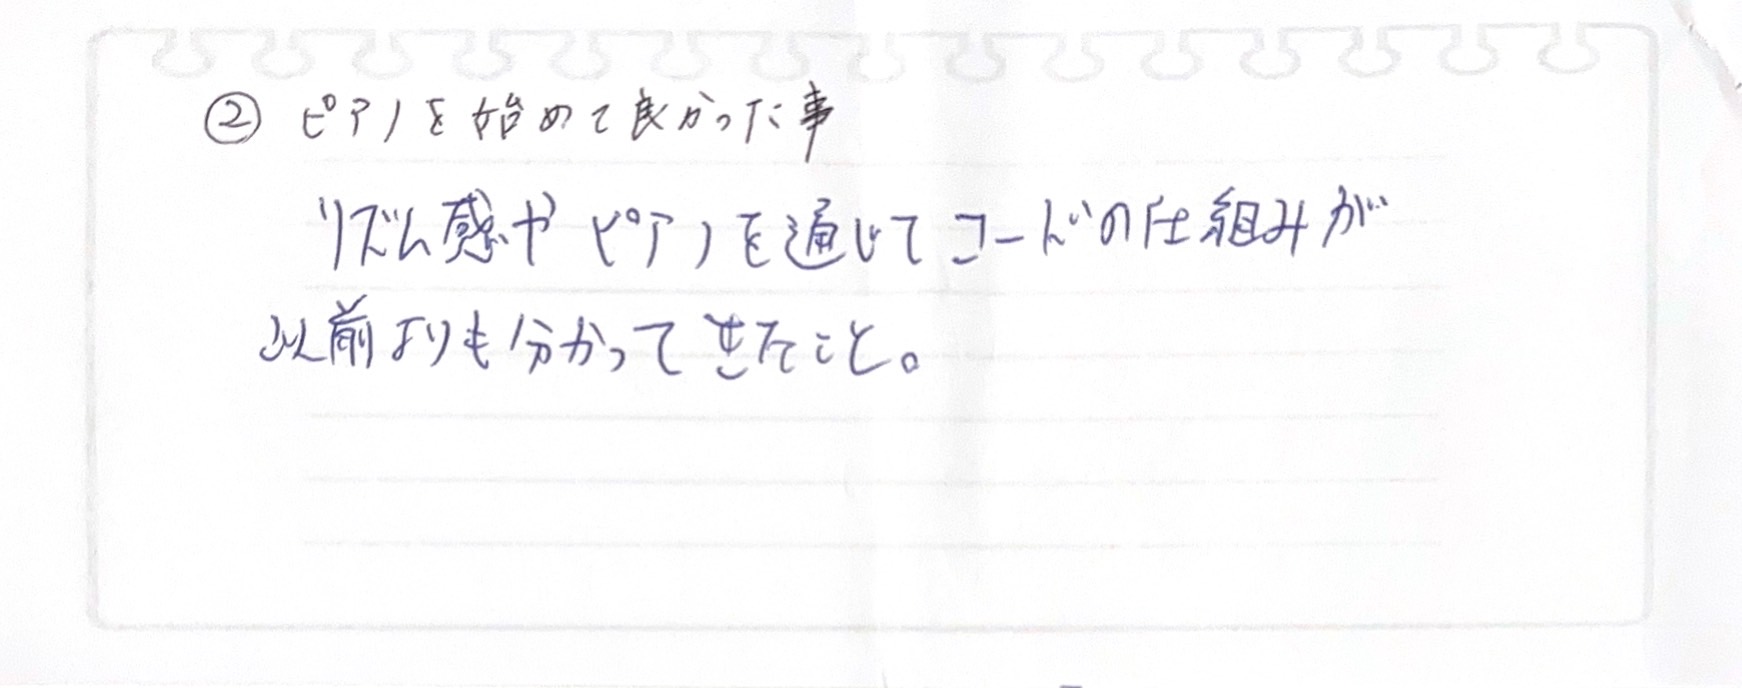 ② ピアノを始めて良かった事
リズム感やピアノを通じてコードの仕組みが
以前よりも分かってきたこと。